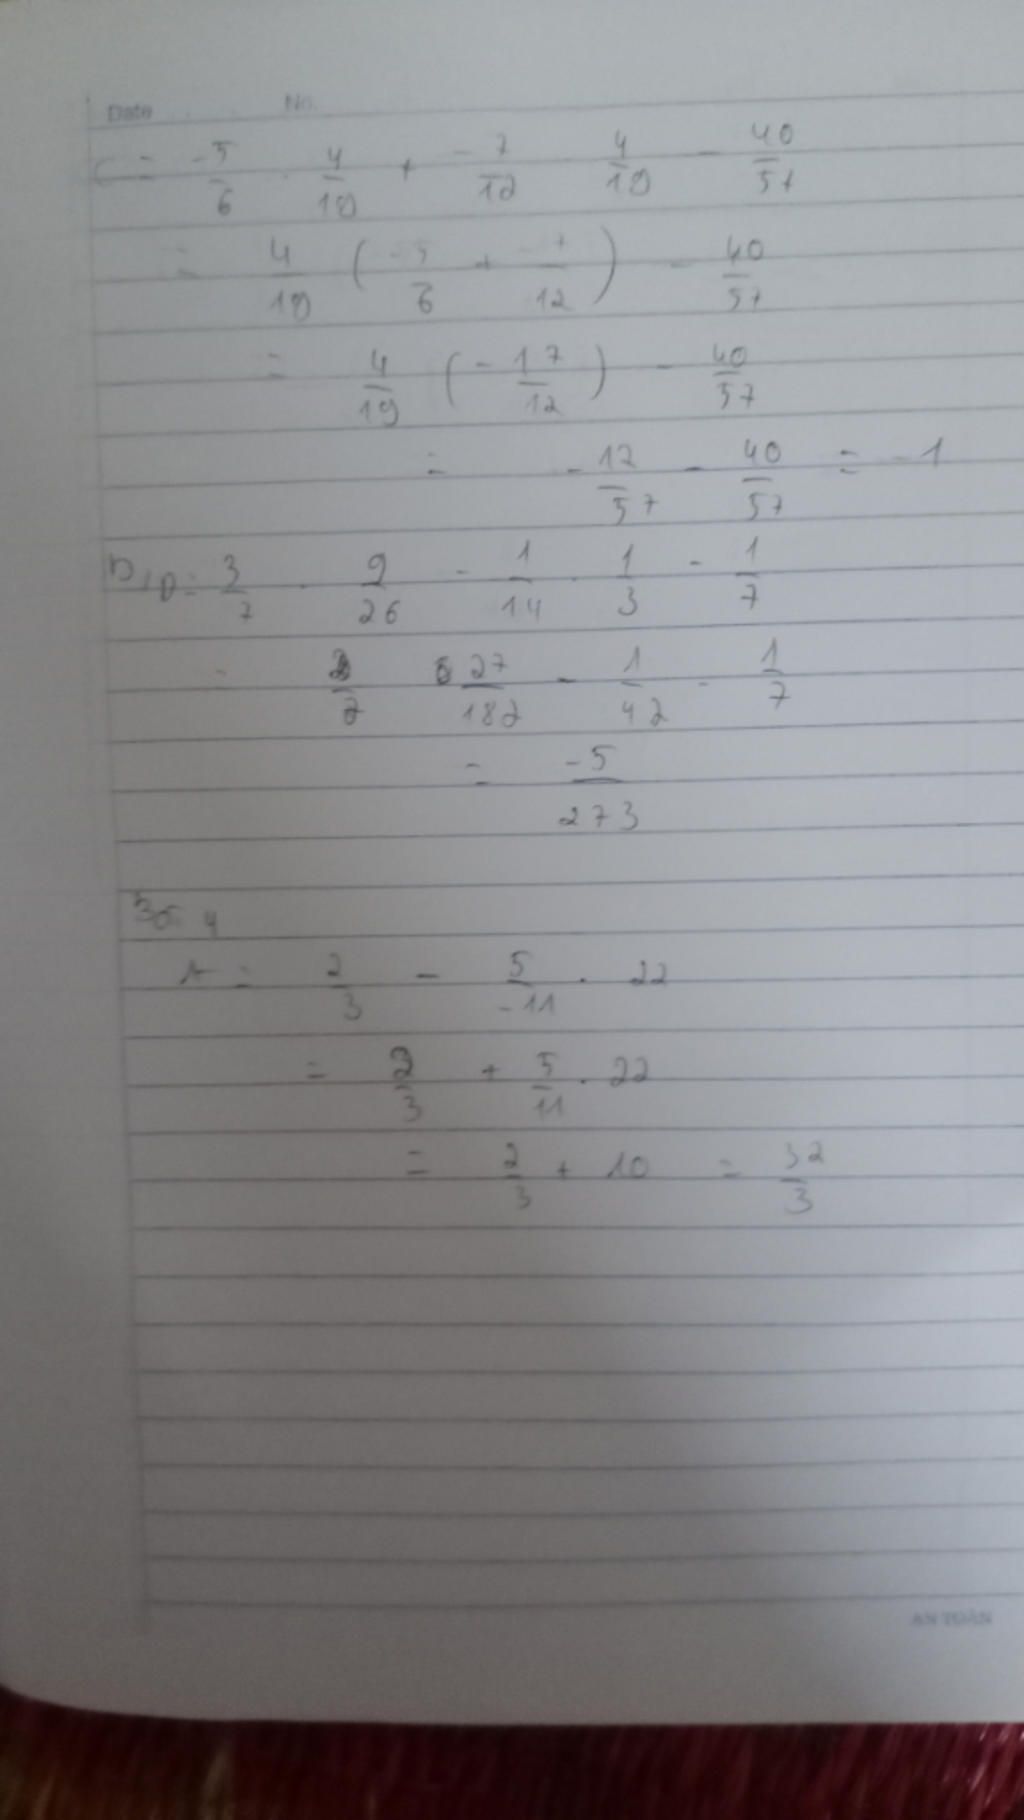 Date No.
C = -5/6 . 4/19 + -7/12 . 4/19 - 40/57
= 4/19 ( -5/6 + -7/12 ) - 40/57
= 4/19 ( -17/12 ) - 40/57
= -17/57 - 40/57 = -1
D, D = 3/7 . 9/26 - 1/14 . 1/3 - 1/7
= 27/182 - 1/42 - 1/7
= -5/273
Bài 4
A = 2/3 - 5/-11 . 22
= 2/3 + 5/11 . 22
= 2/3 + 10 = 32/3
AN TOÀN